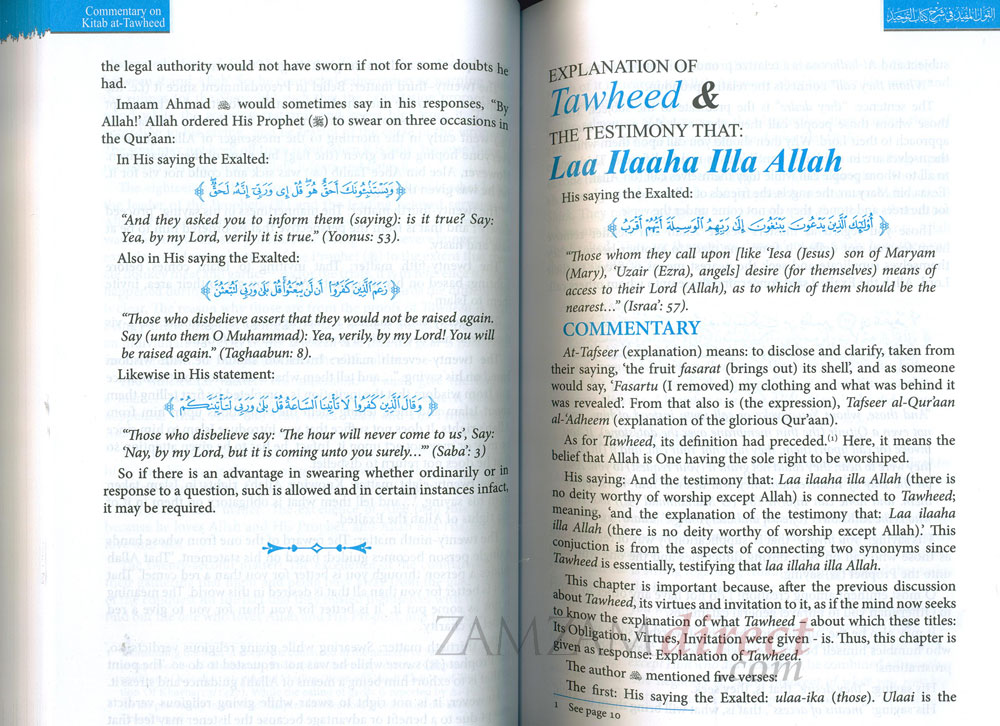 Commentary on
Kitab at-Tawheed
the legal authority would not have sworn if not for some doubts he
had.
Imaam Ahmad would sometimes say in his responses, “By
Allah!’ Allah ordered His Prophet (ﷺ) to swear on three occasions in
the Qur’aan:
In His saying the Exalted:
﴿ وَيَسْتَنْبِئُونَكَ أَحَقٌّ هُوَ قُلْ إِي وَرَبِّي إِنَّهُ لَحَقٌّ ﴾
“And they asked you to inform them (saying): is it true? Say:
Yea, by my Lord, verily it is true.” (Yoonus: 53).
Also in His saying the Exalted:
﴿ زَعَمَ الَّذِينَ كَفَرُوا أَن لَّن يُبْعَثُوا قُلْ بَلَى وَرَبِّي لَتُبْعَثُنَّ ﴾
“Those who disbelieve assert that they would not be raised again.
Say (unto them O Muhammad): Yea, verily, by my Lord! You will
be raised again.” (Taghaabun: 8).
Likewise in His statement:
﴿ وَقَالَ الَّذِينَ كَفَرُوا لَا تَأْتِينَا السَّاعَةُ قُلْ بَلَى وَرَبِّي لَتَأْتِيَنَّكُمْ ﴾
“Those who disbelieve say: ‘The hour will never come to us’, Say:
‘Nay, by my Lord, but it is coming unto you surely…’” (Saba’: 3)
So if there is an advantage in swearing whether ordinarily or in
response to a question, such is allowed and in certain instances infact,
it may be required.
القول المفيد في شرح كتاب التوحيد
EXPLANATION OF
Tawheed &
THE TESTIMONY THAT:
Laa Ilaaha Illa Allah
His saying the Exalted:
﴿ أُولَئِكَ الَّذِينَ يَدْعُونَ يَبْتَغُونَ إِلَى رَبِّهِمُ الْوَسِيلَةَ أَيُّهُمْ أَقْرَبُ ﴾
“Those whom they call upon [like ‘Iesa (Jesus) son of Maryam
(Mary), ‘Uzair (Ezra), angels] desire (for themselves) means of
access to their Lord (Allah), as to which of them should be the
nearest…” (Israa’: 57).
COMMENTARY
At-Tafseer (explanation) means: to disclose and clarify, taken from
their saying, ‘the fruit fasarat (brings out) its shell’, and as someone
would say, ‘Fasartu (I removed) my clothing and what was behind it
was revealed’. From that also is (the expression), Tafseer al-Qur’aan
al-‘Adheem (explanation of the glorious Qur’aan).
As for Tawheed, its definition had preceded.(1) Here, it means the
belief that Allah is One having the sole right to be worshiped.
His saying: And the testimony that: Laa ilaaha illa Allah (there is
no deity worthy of worship except Allah) is connected to Tawheed;
meaning, ‘and the explanation of the testimony that: Laa ilaaha
illa Allah (there is no deity worthy of worship except Allah).’ This
conjuction is from the aspects of connecting two synonyms since
Tawheed is essentially, testifying that laa illaha illa Allah.
This chapter is important because, after the previous discussion
about Tawheed, its virtues and invitation to it, as if the mind now seeks
to know the explanation of what Tawheed – about which these titles:
Its Obligation, Virtues, Invitation were given - is. Thus, this chapter is
given as response: Explanation of Tawheed.
The author mentioned five verses:
The first: His saying the Exalted: ulaa-ika (those). Ulaai is the
1 See page 10
ZAMZAMdirect
.com